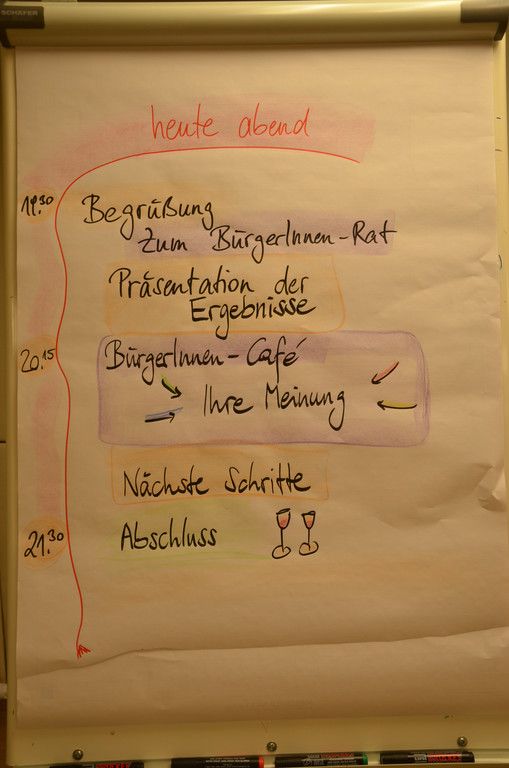 SCHÄFER
heute abend
19.30
Begrüßung
zum BürgerInnen-Rat
Präsentation der
Ergebnisse
20.15
BürgerInnen-Café
Ihre Meinung
Nächste Schritte
21.30
Abschluss